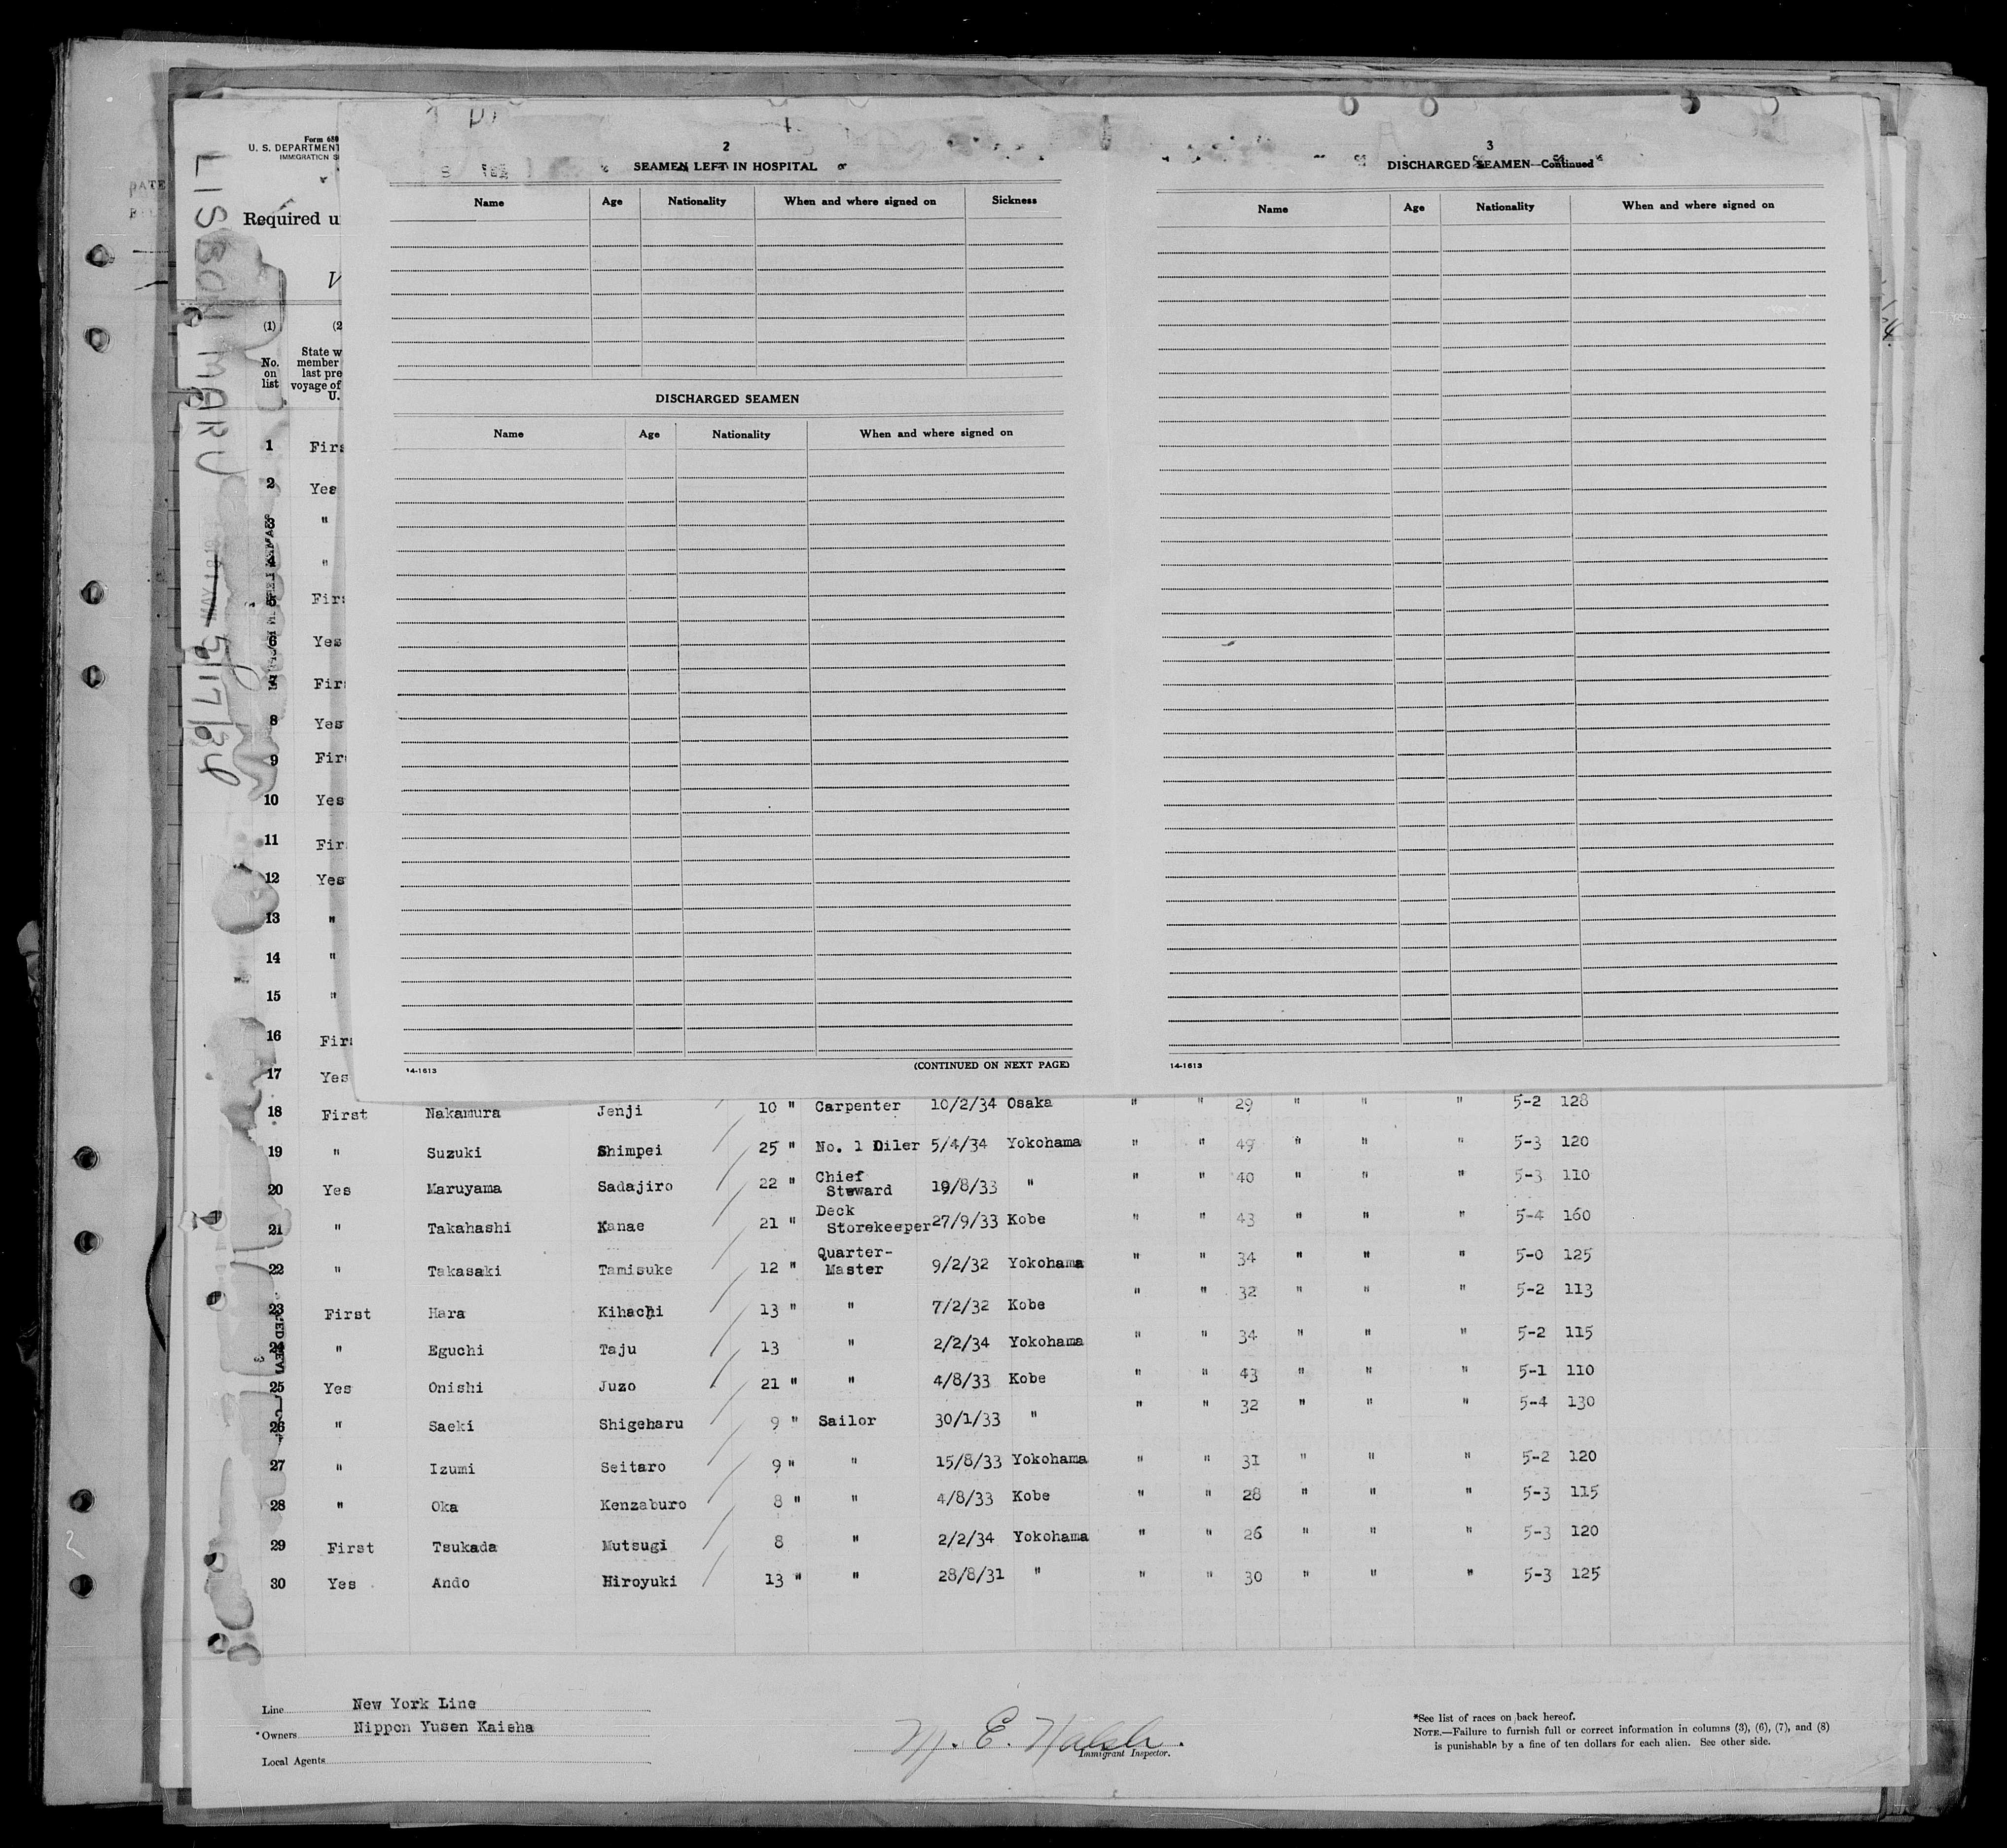 Form 680
U. S. DEPARTMENT
IMMIGRATION S
Required u
LISBON MARU
5/17/34
(1)
(2
No. on list
State w
member
last pre
voyage of
U.
1 Firs
2 Yes
3 "
4 "
5 Firs
6 Yes
7 Firs
8 Yes
9 Firs
10 Yes
11 Firs
12 Yes
13 "
14 "
15 "
16 Firs
17 Yes
2
SEAMEN LEFT IN HOSPITAL
Name Age Nationality When and where signed on Sickness
DISCHARGED SEAMEN
Name Age Nationality When and where signed on
14-1613 (CONTINUED ON NEXT PAGE)
3
DISCHARGED SEAMEN—Continued
Name Age Nationality When and where signed on
14-1613
18 First Nakamura Jenji 10 " Carpenter 10/2/34 Osaka " " 29 " " " 5-2 128
19 " Suzuki Shimpei 25 " No. 1 Oiler 5/4/34 Yokohama " " 49 " " " 5-3 120
20 Yes Maruyama Sadajiro 22 " Chief Steward 19/8/33 " " " 40 " " " 5-3 110
21 " Takahashi Kanae 21 " Deck Storekeeper 27/9/33 Kobe " " 43 " " " 5-4 160
22 " Takasaki Tamisuke 12 " Quarter-Master 9/2/32 Yokohama " " 34 " " " 5-0 125
23 First Hara Kihachi 13 " " 7/2/32 Kobe " " 32 " " " 5-2 113
24 " Eguchi Taju 13 " 2/2/34 Yokohama " " 34 " " " 5-2 115
25 Yes Onishi Juzo 21 " " 4/8/33 Kobe " " 43 " " " 5-1 110
26 " Saeki Shigeharu 9 " Sailor 30/1/33 " " " 32 " " " 5-4 130
27 " Izumi Seitaro 9 " " 15/8/33 Yokohama " " 31 " " " 5-2 120
28 " Oka Kenzaburo 8 " " 4/8/33 Kobe " " 28 " " " 5-3 115
29 First Tsukada Mutsugi 8 " 2/2/34 Yokohama " " 26 " " " 5-3 120
30 Yes Ando Hiroyuki 13 " " 28/8/31 " " " 30 " " " 5-3 125
Line New York Line
*Owners Nippon Yusen Kaisha
Local Agents
M. E. Walsh
Immigrant Inspector.
*See list of races on back hereof.
NOTE.—Failure to furnish full or correct information in columns (3), (6), (7), and (8)
is punishable by a fine of ten dollars for each alien. See other side.